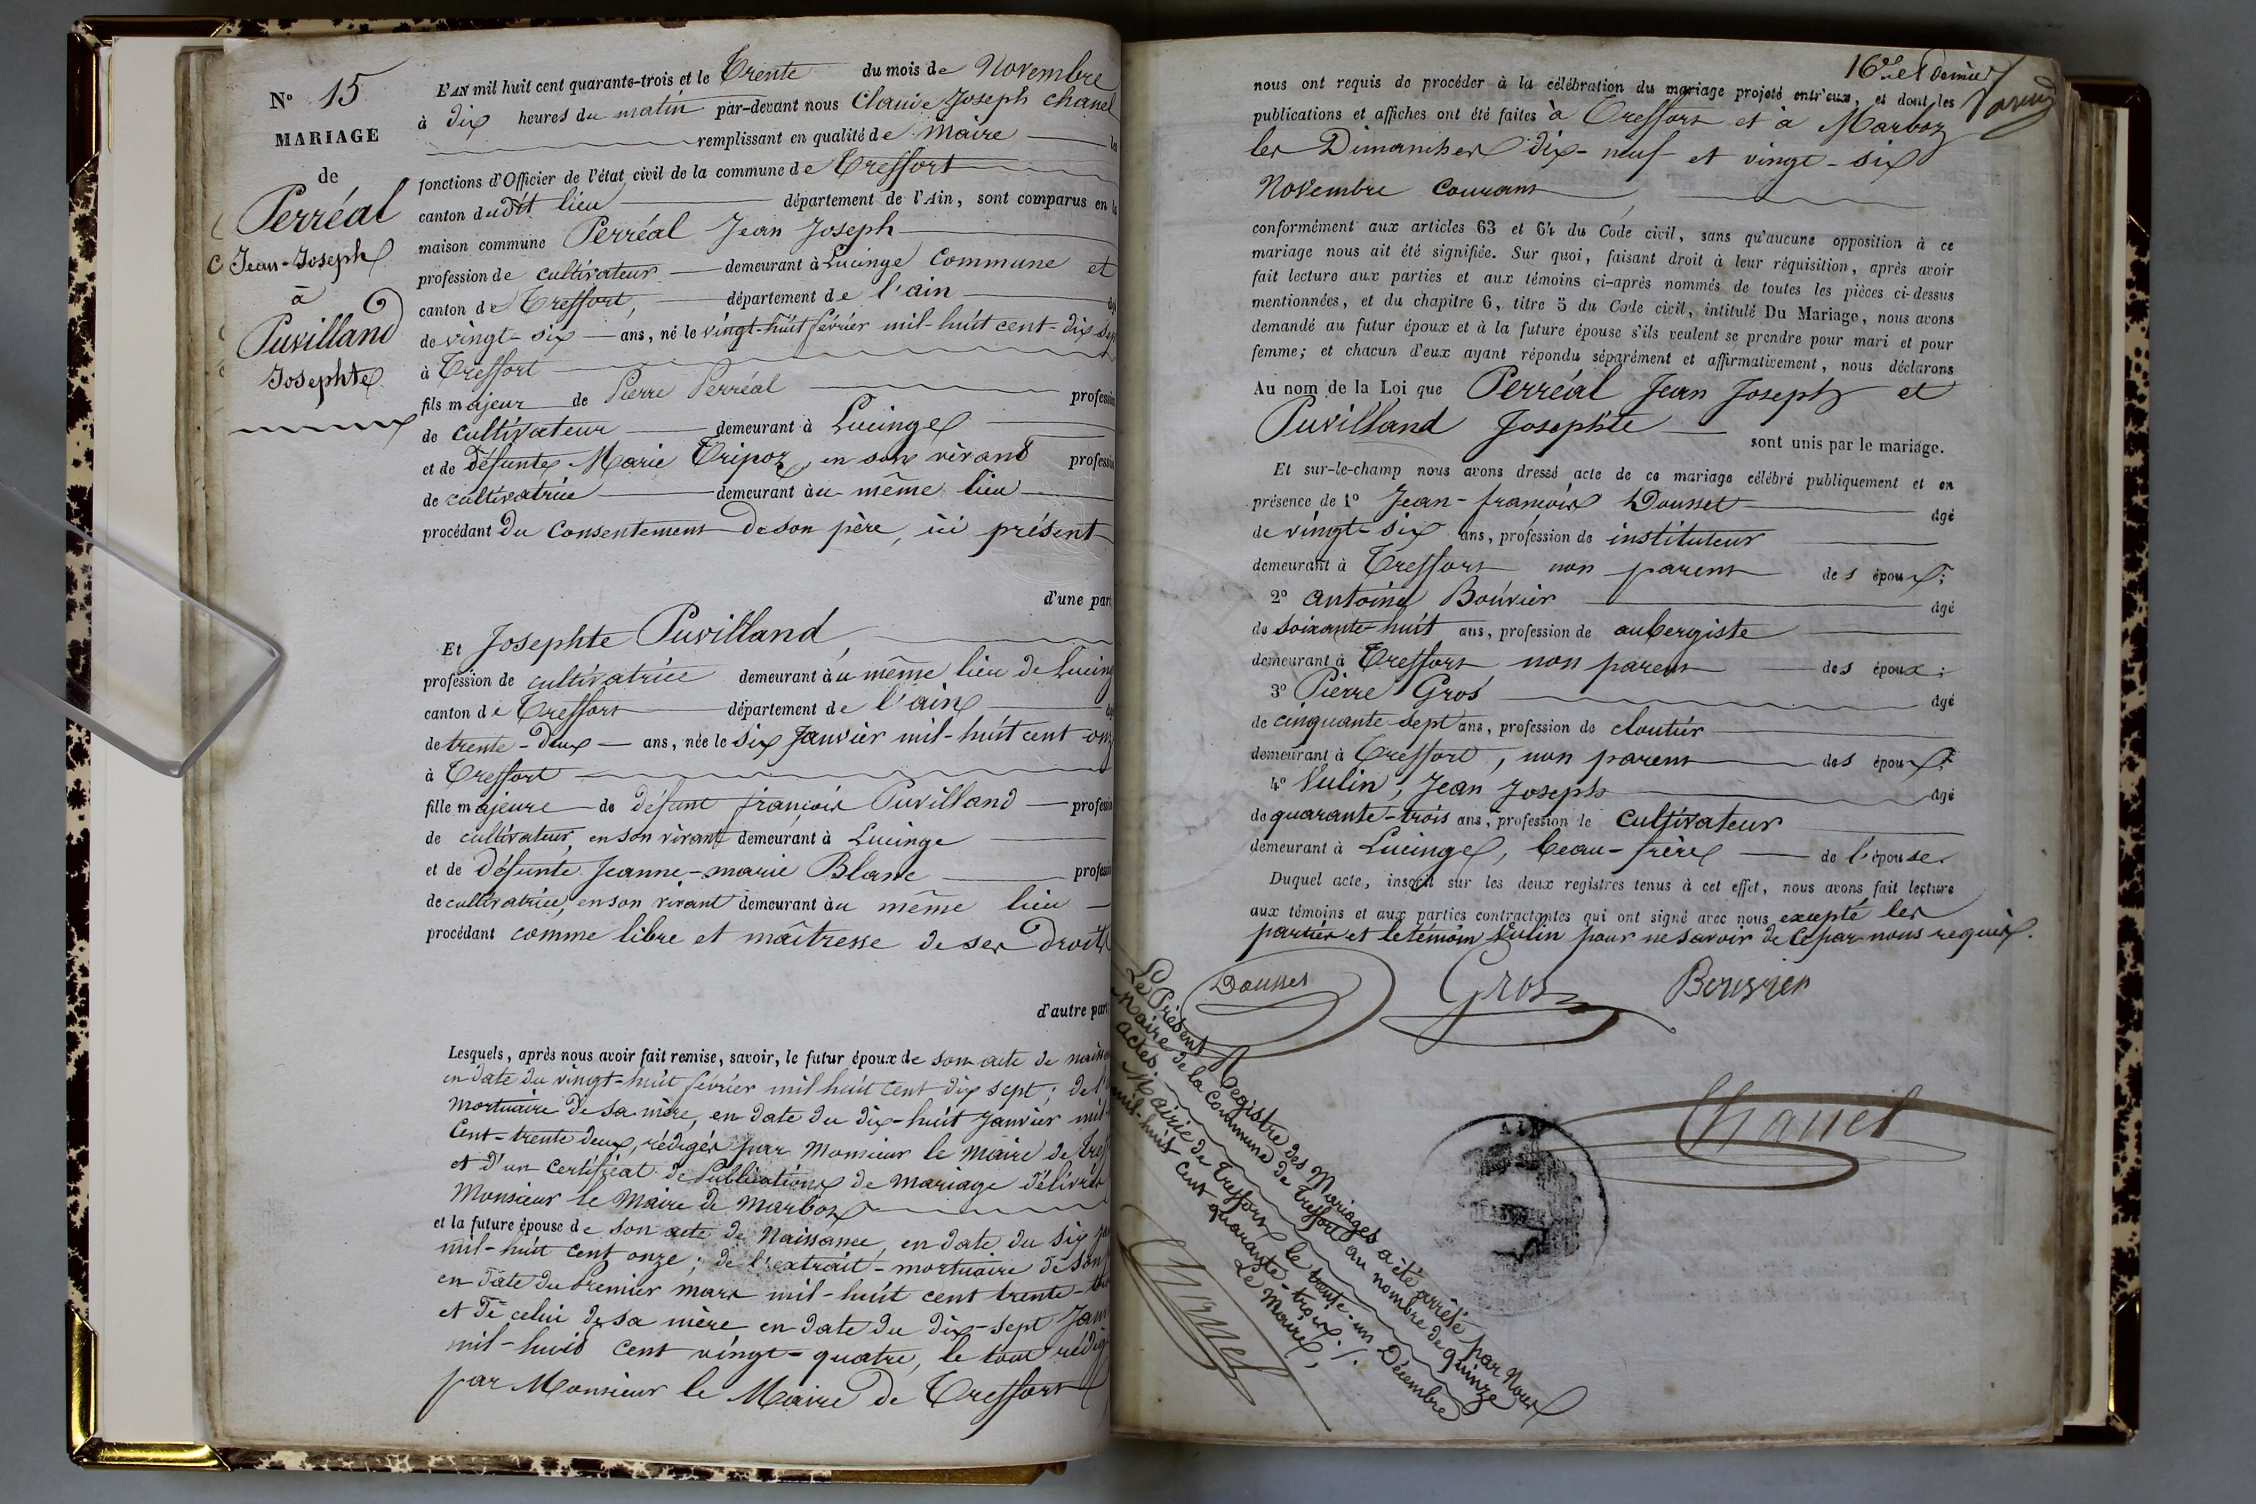 N° 15
MARIAGE
de
Perréal
Jean-Joseph
à
Puvilland
Josephte
L'AN mil huit cent quarante-trois et le Trente du mois de Novembre
à dix heures du matin par-devant nous Claude Joseph Chanel
remplissant en qualité de Maire les
fonctions d'Officier de l'état civil de la commune de Treffort
canton du dit lieu département de l'Ain, sont comparus en la
maison commune Perréal Jean Joseph
profession de cultivateur demeurant à Lucinge Commune et
canton de Treffort, département de l'ain âgé
de vingt-six ans, né le vingt-huit février mil-huit cent-dix-sept
à Treffort
fils majeur de Pierre Perréal profession
de cultivateur demeurant à Lucinge
et de défunte Marie Tripoz, en son vivant profession
de cultivatrice demeurant au même lieu
procédant du consentement de son père, ici présent
d'une part
Et Josephte Puvilland,
profession de cultivatrice demeurant au même lieu de Lucinge
canton de Treffort département de l'ain
de trente-deux ans, née le six Janvier mil-huit cent onze
à Treffort
fille majeure de défunt françois Puvilland profession
de cultivateur, en son vivant demeurant à Lucinge
et de défunte Jeanne-marie Blanc profession
de cultivatrice, en son vivant demeurant au même lieu
procédant comme libre et maîtresse de ses droits
d'autre part
Lesquels, après nous avoir fait remise, savoir, le futur époux de son acte de
en date du vingt-huit février mil huit cent dix sept; de
mortuaire de sa mère, en date du dix-huit Janvier mil
cent-trente deux, rédigés par Monsieur le maire de
et d'un certificat de Publications de Mariage délivré
Monsieur le Maire de Marboz
et la future épouse de son acte de Naissance, en date du six
mil-huit cent onze; de l'extrait-mortuaire de son
en date du Premier mars mil-huit cent trente
et de celui de sa mère en date du dix-sept
mil-huit cent vingt-quatre, le tout rédigé
par Monsieur le Maire de Treffort
nous ont requis de procéder à la célébration du mariage projeté entr'eux, et dont les
publications et affiches ont été faites à Treffort et à Marboz
les Dimanches dix-neuf et vingt-six
Novembre Courant
conformément aux articles 63 et 64 du Code civil, sans qu'aucune opposition à ce
mariage nous ait été signifiée. Sur quoi, faisant droit à leur réquisition, après avoir
fait lecture aux parties et aux témoins ci-après nommés de toutes les pièces ci-dessus
mentionnées, et du chapitre 6, titre 5 du Code civil, intitulé Du Mariage, nous avons
demandé au futur époux et à la future épouse s'ils veulent se prendre pour mari et pour
femme; et chacun d'eux ayant répondu séparément et affirmativement, nous déclarons
Au nom de la Loi que Perréal Jean Joseph et
Puvilland Josephte sont unis par le mariage.
Et sur-le-champ nous avons dressé acte de ce mariage célébré publiquement et en
présence de 1° Jean-françois Dousset âgé
de vingt-six ans, profession de instituteur
demeurant à Treffort non parent des époux;
2° antoine Bouvier âgé
de soixante-huit ans, profession de aubergiste
demeurant à Treffort non parent des époux;
3° Pierre Gros âgé
de cinquante-sept ans, profession de cloutier
demeurant à Treffort, non parent des époux;
4° Vulin, Jean Joseph âgé
de quarante-trois ans, profession de Cultivateur
demeurant à Lucinge, beau-frère de l'épouse.
Duquel acte, inscrit sur les deux registres tenus à cet effet, nous avons fait lecture
aux témoins et aux parties contractantes qui ont signé avec nous excepté les
parties et le témoin Vulin pour ne savoir de ce par nous requis.
Dousset Gros Bouvier
Chanel
AIN
Le Présent Registre des Mariages a été arrêté par Nous
Maire de la Commune de Treffort au nombre de quinze
actes.
Mairie de Treffort le trente-un Décembre
mil-huit cent quarante-trois./.
Le Maire,
Chanel